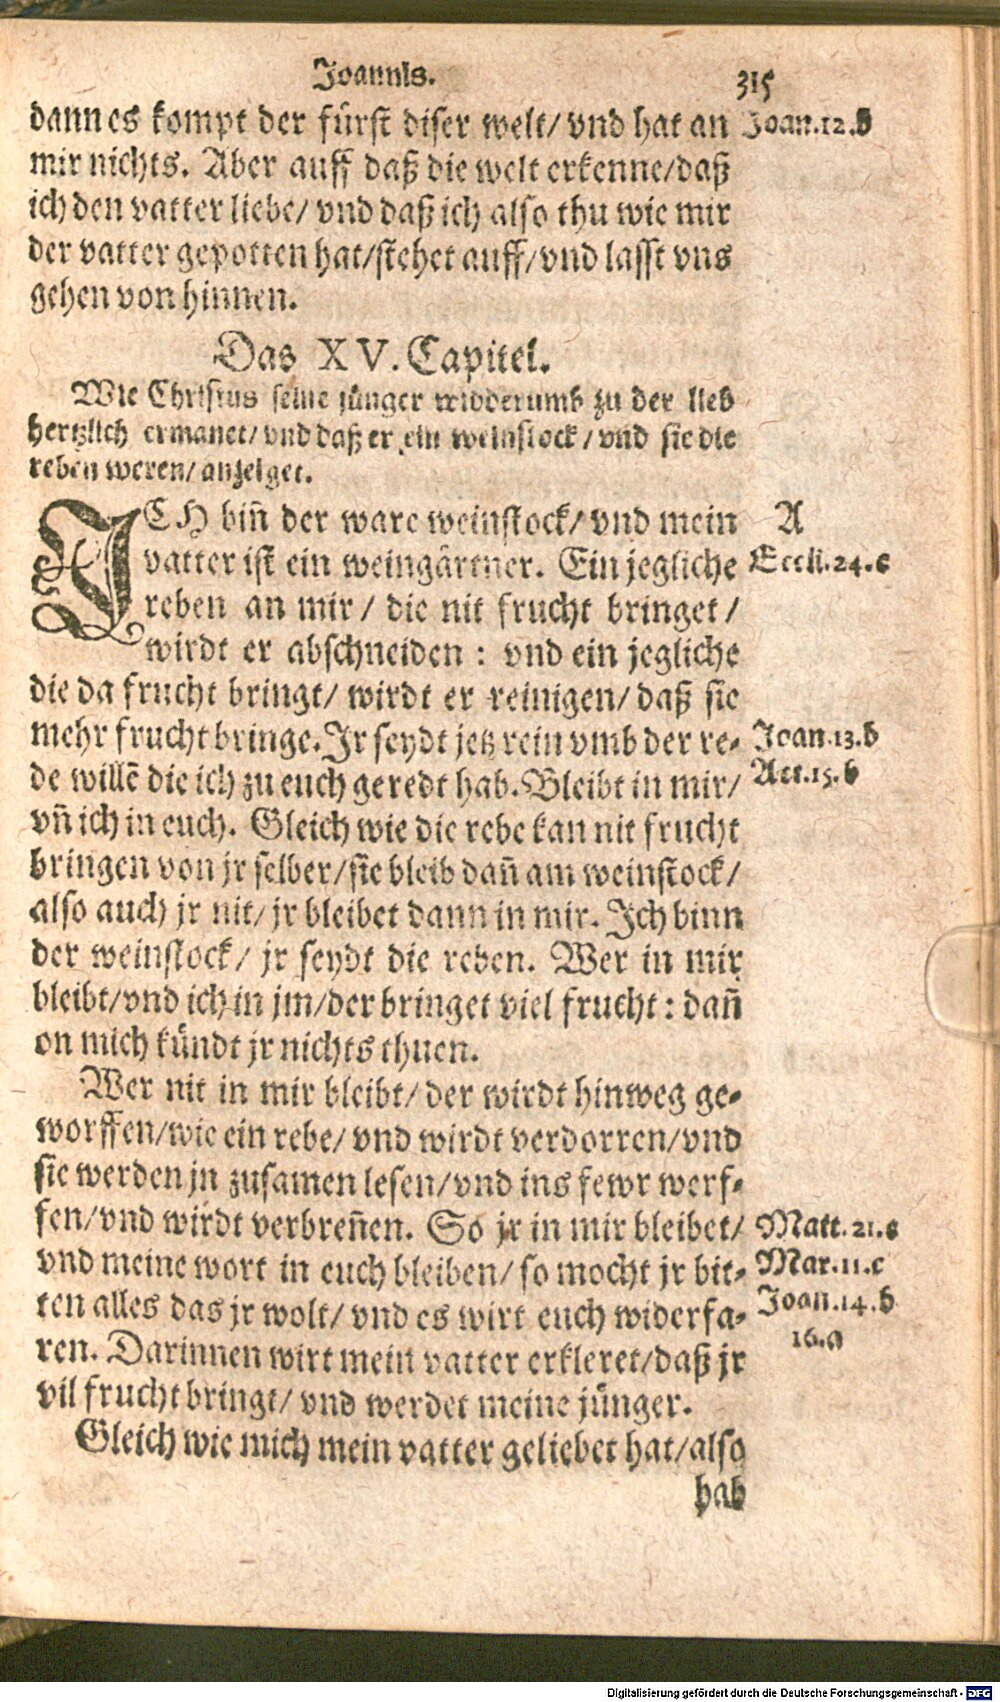 Joannis. 315
dann es kompt der fürst diser welt/ vnd hat an Joan.12.d
mir nichts. Aber auff daß die welt erkenne/daß
ich den vatter liebe/ vnd daß ich also thu wie mir
der vatter gepotten hat/stehet auff/vnd lasst vns
gehen von hinnen.
Das XV. Capitel.
Wie Christus seine jünger widderumb zu der lieb
hertzlich ermanet/ vnd daß er ein weinstock/ vnd sie die
reben weren/ anzeiget.
ICH biñ der ware weinstock/ vnd mein A
vatter ist ein weingärtner. Ein jegliche Eccli.24.c
reben an mir/ die nit frucht bringet/
wirdt er abschneiden: vnd ein jegliche
die da frucht bringt/ wirdt er reinigen/ daß sie
mehr frucht bringe. Jr seydt jetz rein vmb der re- Joan.13.b
de willē die ich zu euch geredt hab. Bleibt in mir/ Act.15.b
vñ ich in euch. Gleich wie die rebe kan nit frucht
bringen von jr selber/sie bleib dañ am weinstock/
also auch jr nit/ jr bleibet dann in mir. Ich binn
der weinstock/ jr seydt die reben. Wer in mir
bleibt/vnd ich in jm/der bringet viel frucht: dañ
on mich kündt jr nichts thuen.
Wer nit in mir bleibt/ der wirdt hinweg ge-
worffen/wie ein rebe/ vnd wirdt verdorren/vnd
sie werden jn zusamen lesen/vnd ins fewr werf-
fen/vnd wirdt verbreñen. So jr in mir bleibet/ Matt.21.c
vnd meine wort in euch bleiben/ so mocht jr bit- Mar.11.c
ten alles das jr wolt/ vnd es wirt euch widerfa- Joan.14.b
ren. Darinnen wirt mein vatter erkleret/daß jr 16.a
vil frucht bringt/ vnd werdet meine jünger.
Gleich wie mich mein vatter geliebet hat/also
hab
Digitalisierung gefördert durch die Deutsche Forschungsgemeinschaft - DFG